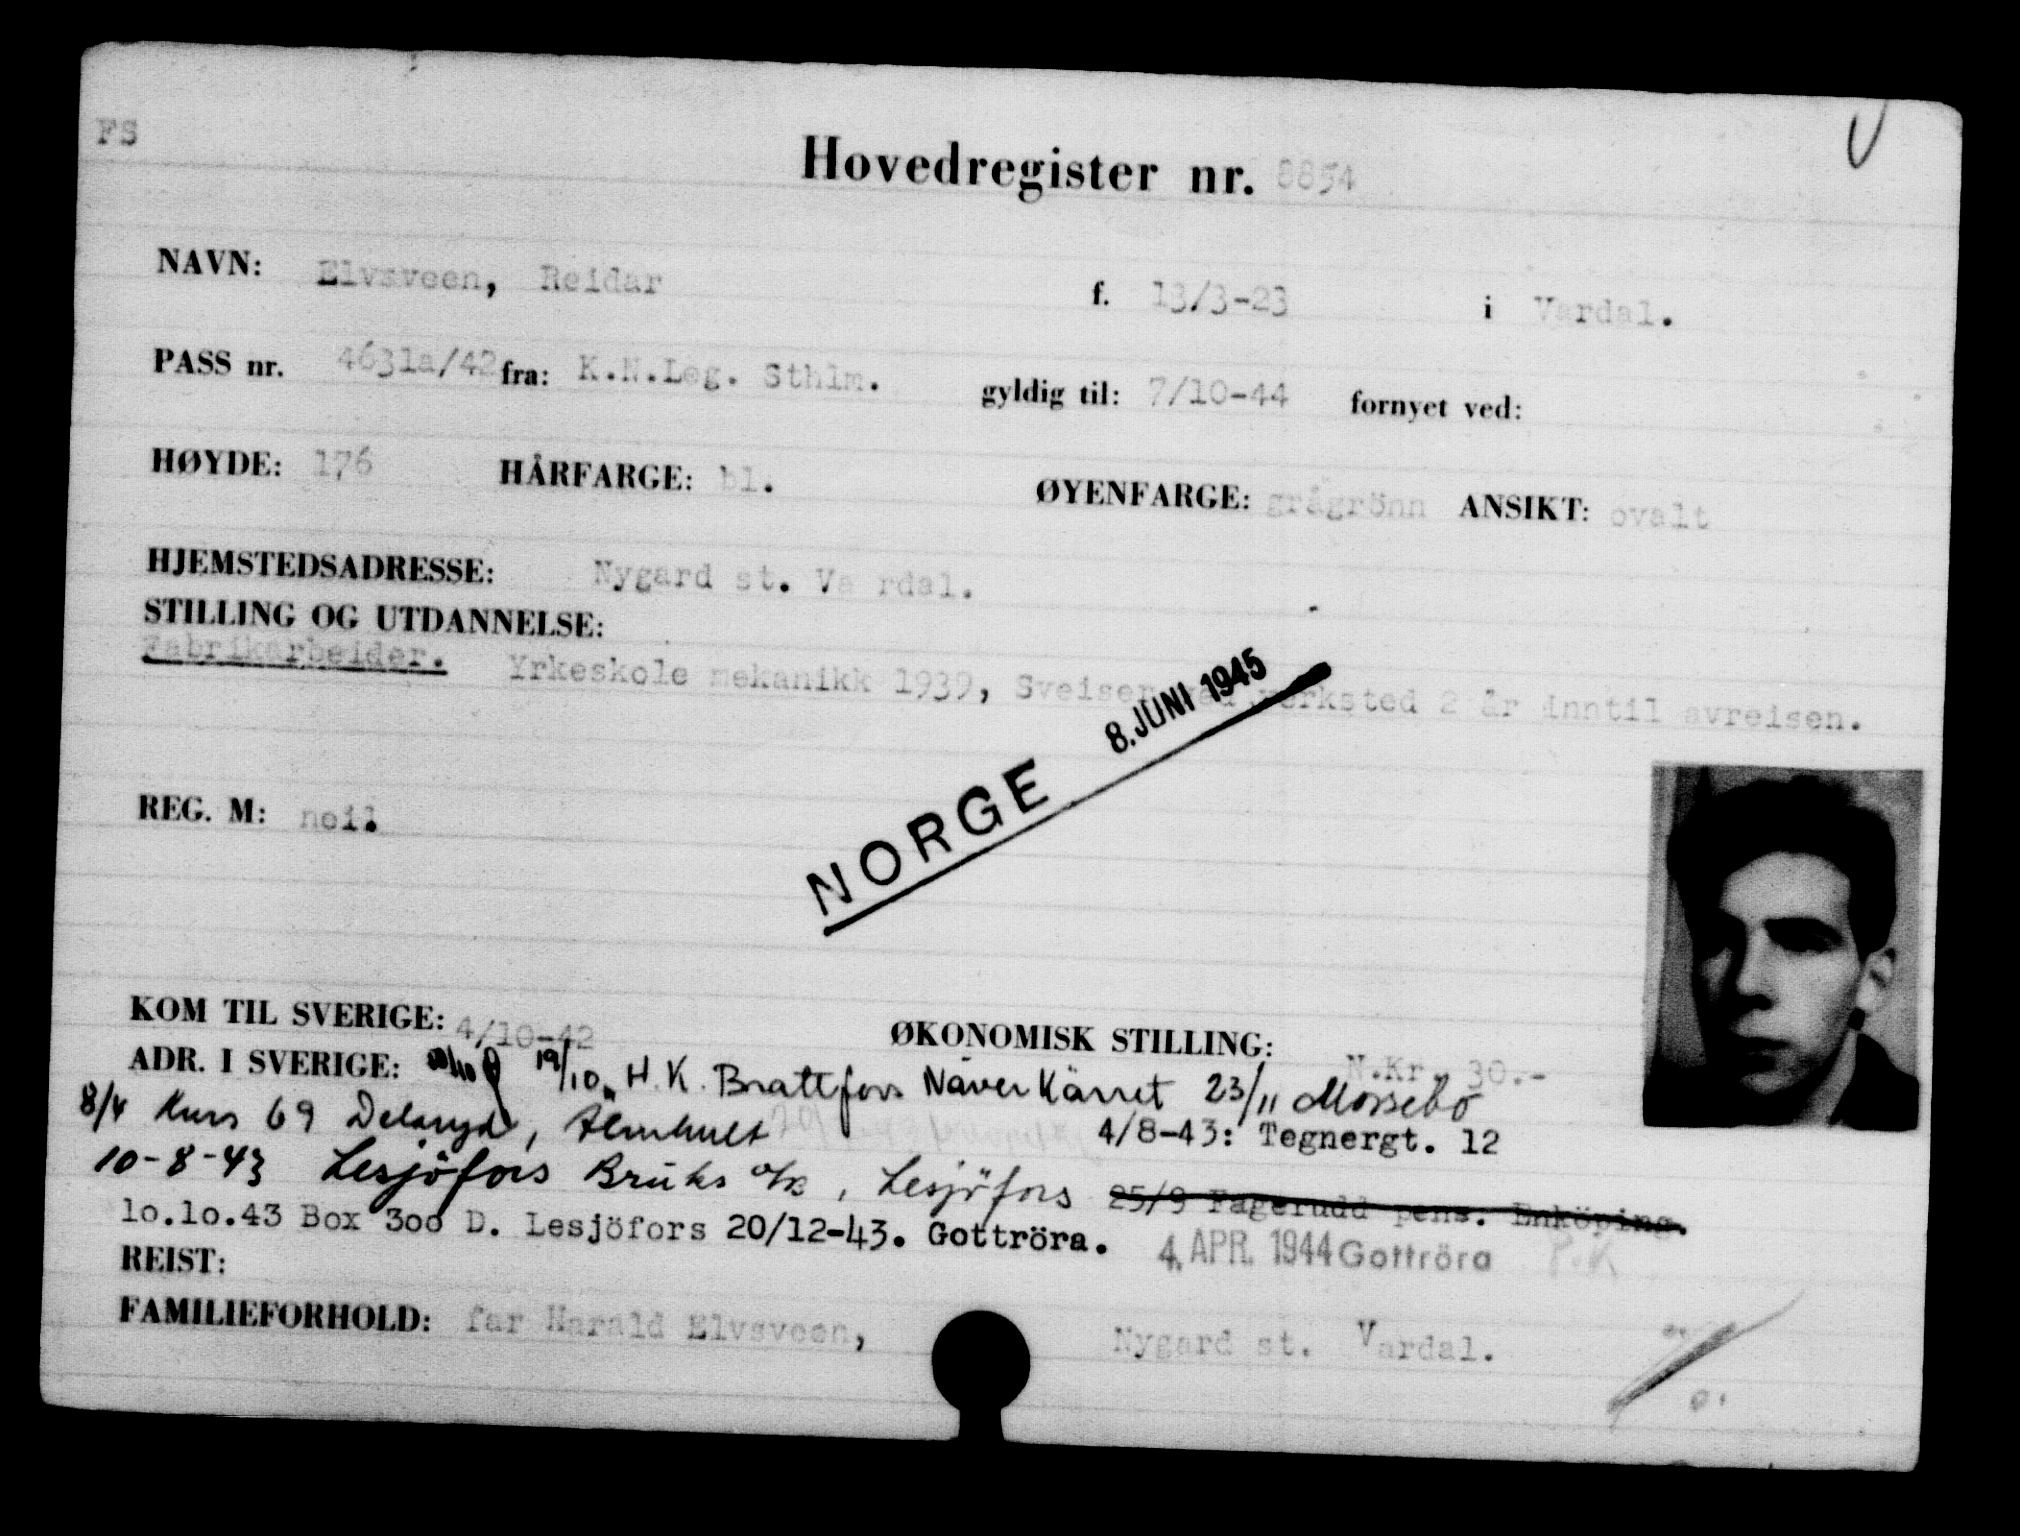 FS
Hovedregister nr. 8854
NAVN: Elvsveen, Reidar f. 13/3-23 i Vardal.
PASS nr. 4631a/42 fra: K.N.Leg. Sthlm. gyldig til: 7/10-44 fornyet ved:
HØYDE: 176 HÅRFARGE: bl. ØYENFARGE: grågrönn ANSIKT: ovalt
HJEMSTEDSADRESSE: Nygard st. Va rdal.
STILLING OG UTDANNELSE:
Fabrikarbeider. Yrkeskole mekanikk 1939, Sveiser ved verksted 2 år inntil avreisen.
NORGE 8. JUNI 1945
REG. M: neil.
KOM TIL SVERIGE: 4/10-42 ØKONOMISK STILLING: N.Kr. 30.-
ADR. I SVERIGE: 19/10. H.K. Brattfors Näver Kärret 23/11 Morsebo
8/4 Kurs 69 Delaryd, Älmhult 4/8-43: Tegnergt. 12
10-8-43 Lesjöfors Bruks a/b, Lesjöfors 25/9 Fagerudd pens. Enköping.
10.10.43 Box 300 D. Lesjöfors 20/12-43. Gottröra. 4. APR. 1944 Gottröra P.K
REIST:
FAMILIEFORHOLD: far Harald Elvsveen, Nygard st. Vardal.